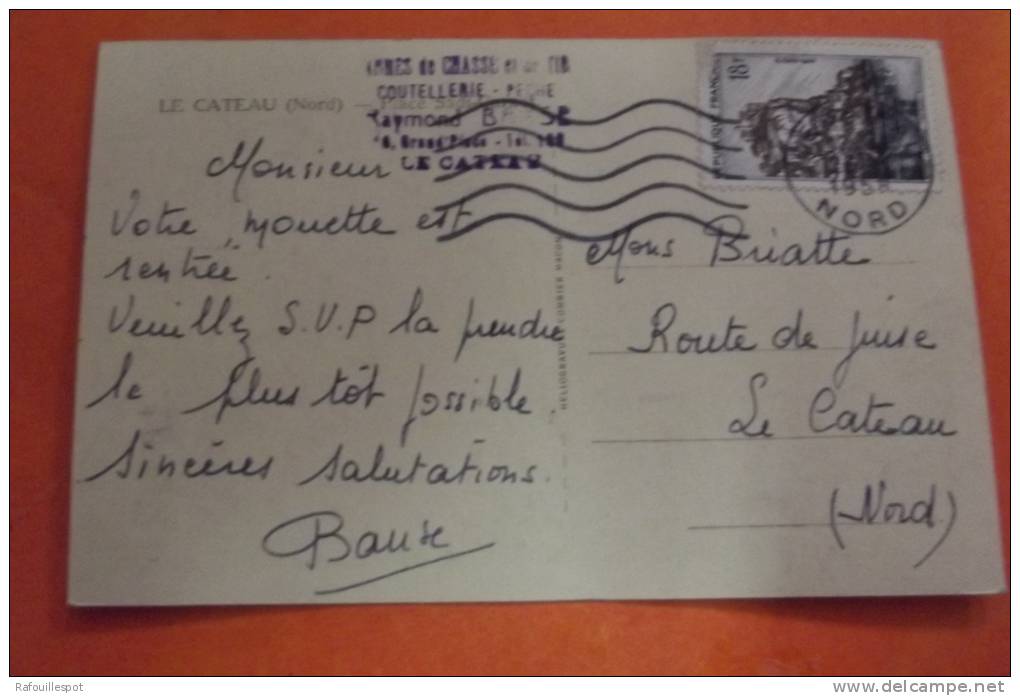 LE CATEAU (Nord) — Place
ARMES de CHASSE et de TIR
COUTELLERIE - PECHE
Raymond
Grand'Place - Tel.
LE CATEAU
REPUBLIQUE FRANÇAISE
18F
1958
NORD
Monsieur
Votre "mouette" est
rentrée.
Veuillez S.V.P la prendre
le plus tôt possible.
Sincères salutations.
Bause
HELIOGRAVURE COMBIER MACON
Mons Briatte
Route de Guise
Le Cateau
(Nord)
Rafouillespot
www.delcampe.net